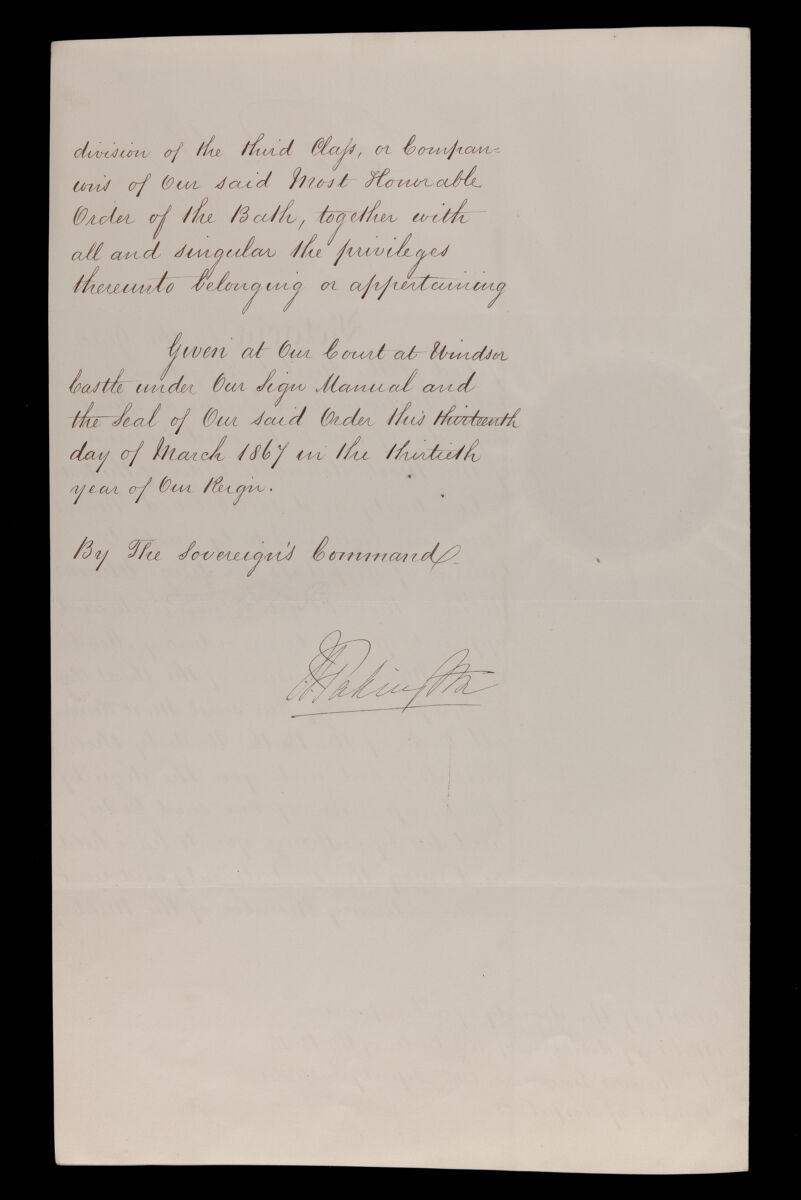 division of the third Class, or Compan=
ions of Our said Most Honorable
Order of the Bath, together with
all and singular the privileges
thereunto belonging or appertaining
Given at Our Court at Windsor
Castle under Our Sign Manual and
the Seal of Our said Order this thirteenth
day of March 1867 in the thirtieth
year of Our Reign.
By The Sovereign's Command
Pakington